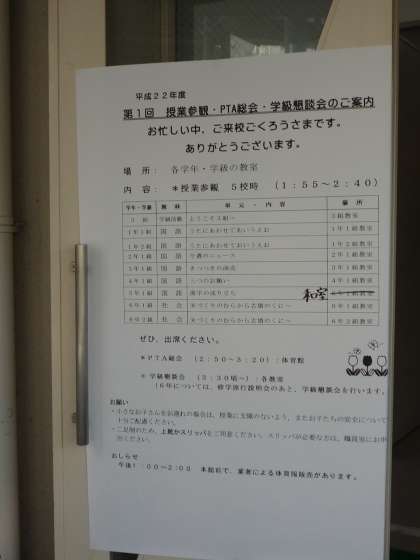 平成22年度
第1回 授業参観・PTA総会・学級懇談会のご案内
お忙しい中、ご来校ごくろうさまです。
ありがとうございます。
場所: 各学年・学級の教室
内容: *授業参観 5校時 (1:55~2:40)
学年・学級 教科 単元・内容 場所
学級活動
1年1組 国語 うたにあわせてあいうえお 1年1組教室
1年2組 国語 うたにあわせてあいうえお 1年2組教室
2年1組 国語 今週のニュース 2年1組教室
3年1組 国語 きつつきの商売 3年1組教室
4年1組 国語 三つのお願い 4年1組教室
5年1組 国語 漢字の成り立ち 和室
6年1組 社会 米づくりのむらから古墳のくにへ 6年1組教室
6年2組 社会 米づくりのむらから古墳のくにへ 6年2組教室
ぜひ、出席ください。
*PTA総会 (2:50~3:20):体育館
*学級懇談会 (3:30頃~):各教室
(6年については、修学旅行説明会のあと、学級懇談会を行います。
お願い
・小さなお子さんをお連れの場合は、授業に支障のないよう、またお子たちの安全について
十分ご配慮ください。
・二足制のため、上靴かスリッパをご用意ください。スリッパが必要な方は、職員室にお申
出ください。
おしらせ
午後1:00~2:00 本館前で、業者による体育服販売があります。